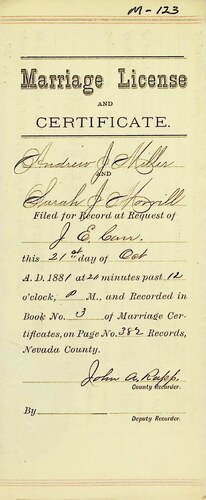 M-123
Marriage License
AND
CERTIFICATE.
Andrew J Miller
AND
Sarah J Morrill
Filed for Record at Request of
J. E. Carr.
this 21st day of Oct
A. D. 1881 at 20 minutes past 12
o'clock, P M., and Recorded in
Book No. 3 of Marriage Cer-
tificates, on Page No. 382 Records,
Nevada County.
John A. Rapp.
County Recorder.
By
Deputy Recorder.